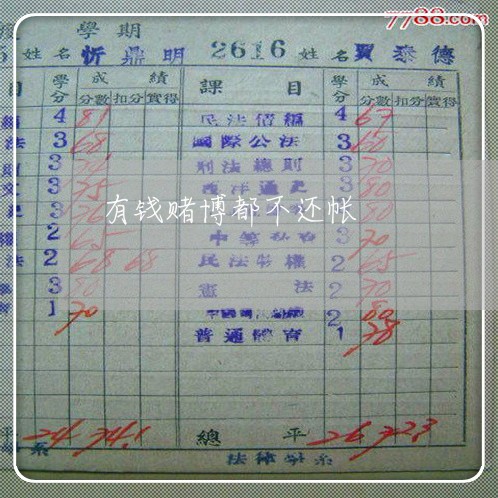 7788.com
學期
5 姓名 忻鼎明 2616 姓名 賈泰德
目 學分 成績 課目 學分 成績
分數 扣分 實得 分數 扣分 實得
4 81 民法債編 4 67
法 3 68 國際公法 3 60
3 刑法總則 3 70
3 75 西洋通史 3 80
有钱赌博都不还帐
2 65 3 70
法 2 68 68 民法物權 2 65
3 80 憲法 2 70
1 70 2 80
普通體育 1 78
平 24 74.1 總平 26 72.3
系 法律學系